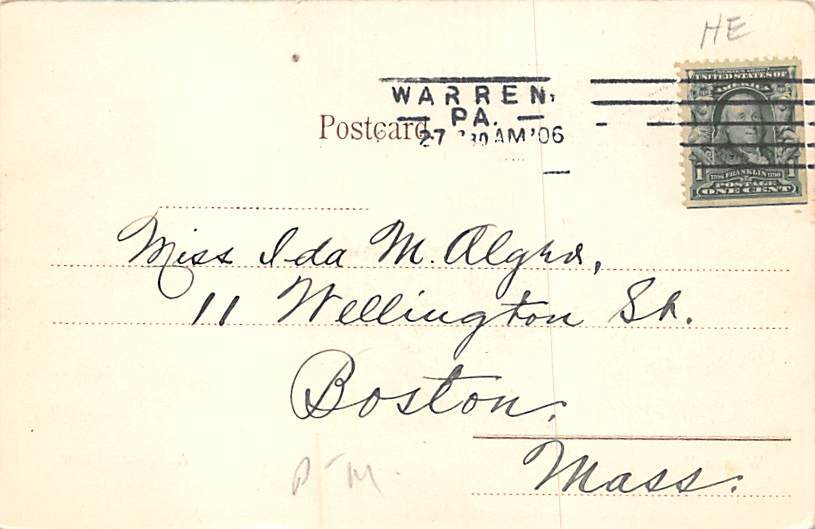 HE
WARREN,
PA.
27 30 AM '06
Postcard
UNITED STATES OF
AMERICA
1 FRANKLIN 1
POSTAGE
ONE CENT
Miss Ida M.
11 Wellington St.
Boston,
Mass.